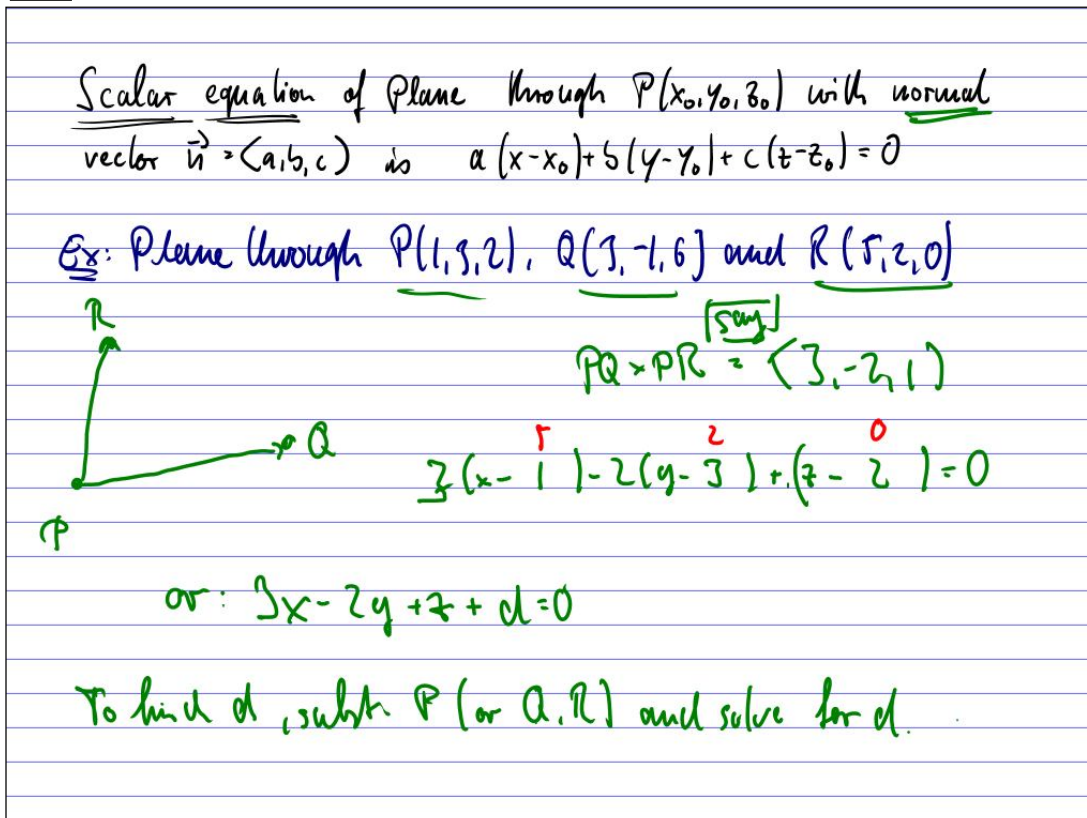 Scalar equation of Plane through P(x₀,y₀,z₀) with normal
vector n⃗ = <a,b,c) is a(x-x₀)+b(y-y₀)+c(z-z₀)=0
Ex: Plane through P(1,3,2), Q(3,-1,6) and R(5,2,0)
R
say
PQ×PR = (3,-2,1)
Q
5 2 0
3(x-1)-2(y-3)+(z-2)=0
P
or: 3x-2y+z+d=0
To find d, subst. P (or Q,R) and solve for d.